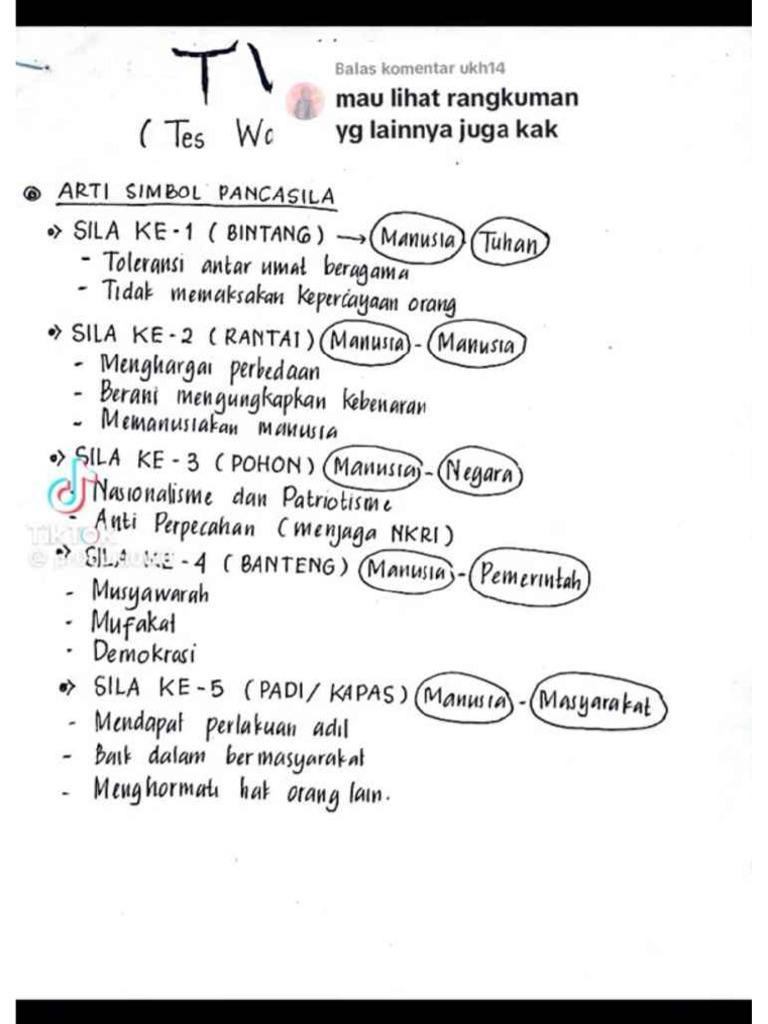 Balas komentar ukh14
mau lihat rangkuman
yg lainnya juga kak
(Tes
ARTI SIMBOL PANCASILA
SILA KE-1 (BINTANG) → Manusia Tuhan
- Toleransi antar umat beragama
- Tidak memaksakan kepercayaan orang
SILA KE-2 (RANTAI) Manusia - Manusia
- Menghargai perbedaan
- Berani mengungkapkan kebenaran
- Memanusiakan manusia
SILA KE-3 (POHON) Manusia - Negara
- Nasionalisme dan Patriotisme
- Anti Perpecahan (menjaga NKRI)
TikTok
SILA KE-4 (BANTENG) Manusia - Pemerintah
- Musyawarah
- Mufakat
- Demokrasi
SILA KE-5 (PADI/KAPAS) Manusia - Masyarakat
- Mendapat perlakuan adil
- Baik dalam bermasyarakat
- Menghormati hak orang lain.